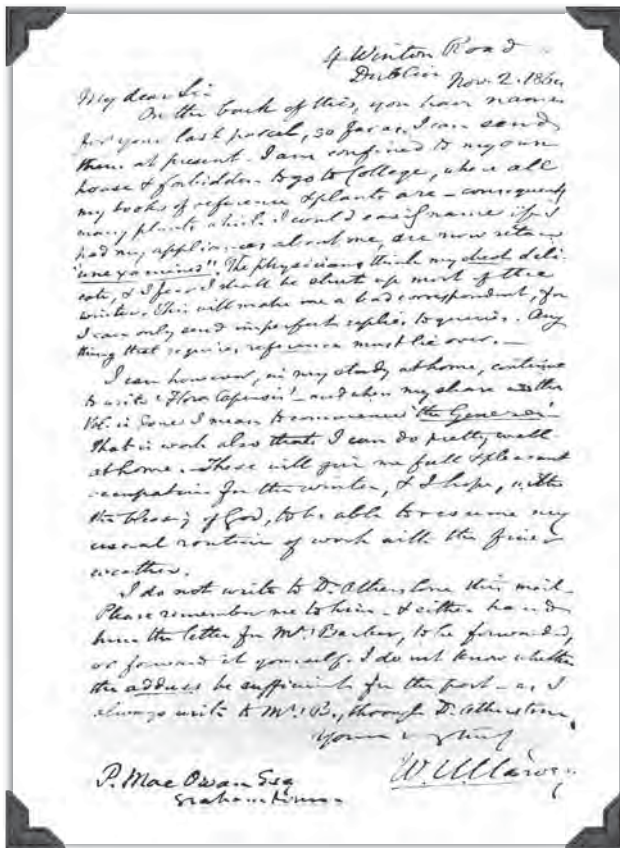 4 Winton Road
Dublin Nov. 2. 1864
My dear Sir
On the back of this, you have names
for your last parcel, so far as I can send
them at present. I am confined to my own
house & forbidden to go to College, where all
my books of reference & plants are – consequently
many plants which I could easily name if I
had my appliances about me, are now
"unexamined". The physicians think my chest deli-
cate, & I fear I shall be shut up most of the
winter. This will make me a bad correspondent, for
I can only send imperfect replies to queries. Any
thing that requires reference must lie over. –
I can however, in my study at home, continue
to write 'Flora Capensis' – and when my share
Vol. is done I mean to commence 'the Genera'.
That is work also that I can do pretty well
at home. – These will give me full & pleasant
occupation for the winter, & I hope, with
the blessing of God, to be able to resume my
usual routine of work with the finer
weather.
I do not write to Dr. Atherstone this mail.
Please remember me to him – & either hand
him the letter for Mrs. Barber, to be forwarded,
or forward it yourself. I do not know whether
the address be sufficient for the post – as I
always write to Mrs. B., through Dr. Atherstone.
Yours
W. H. Harvey
P. Mac Owan Esq
Grahamstown